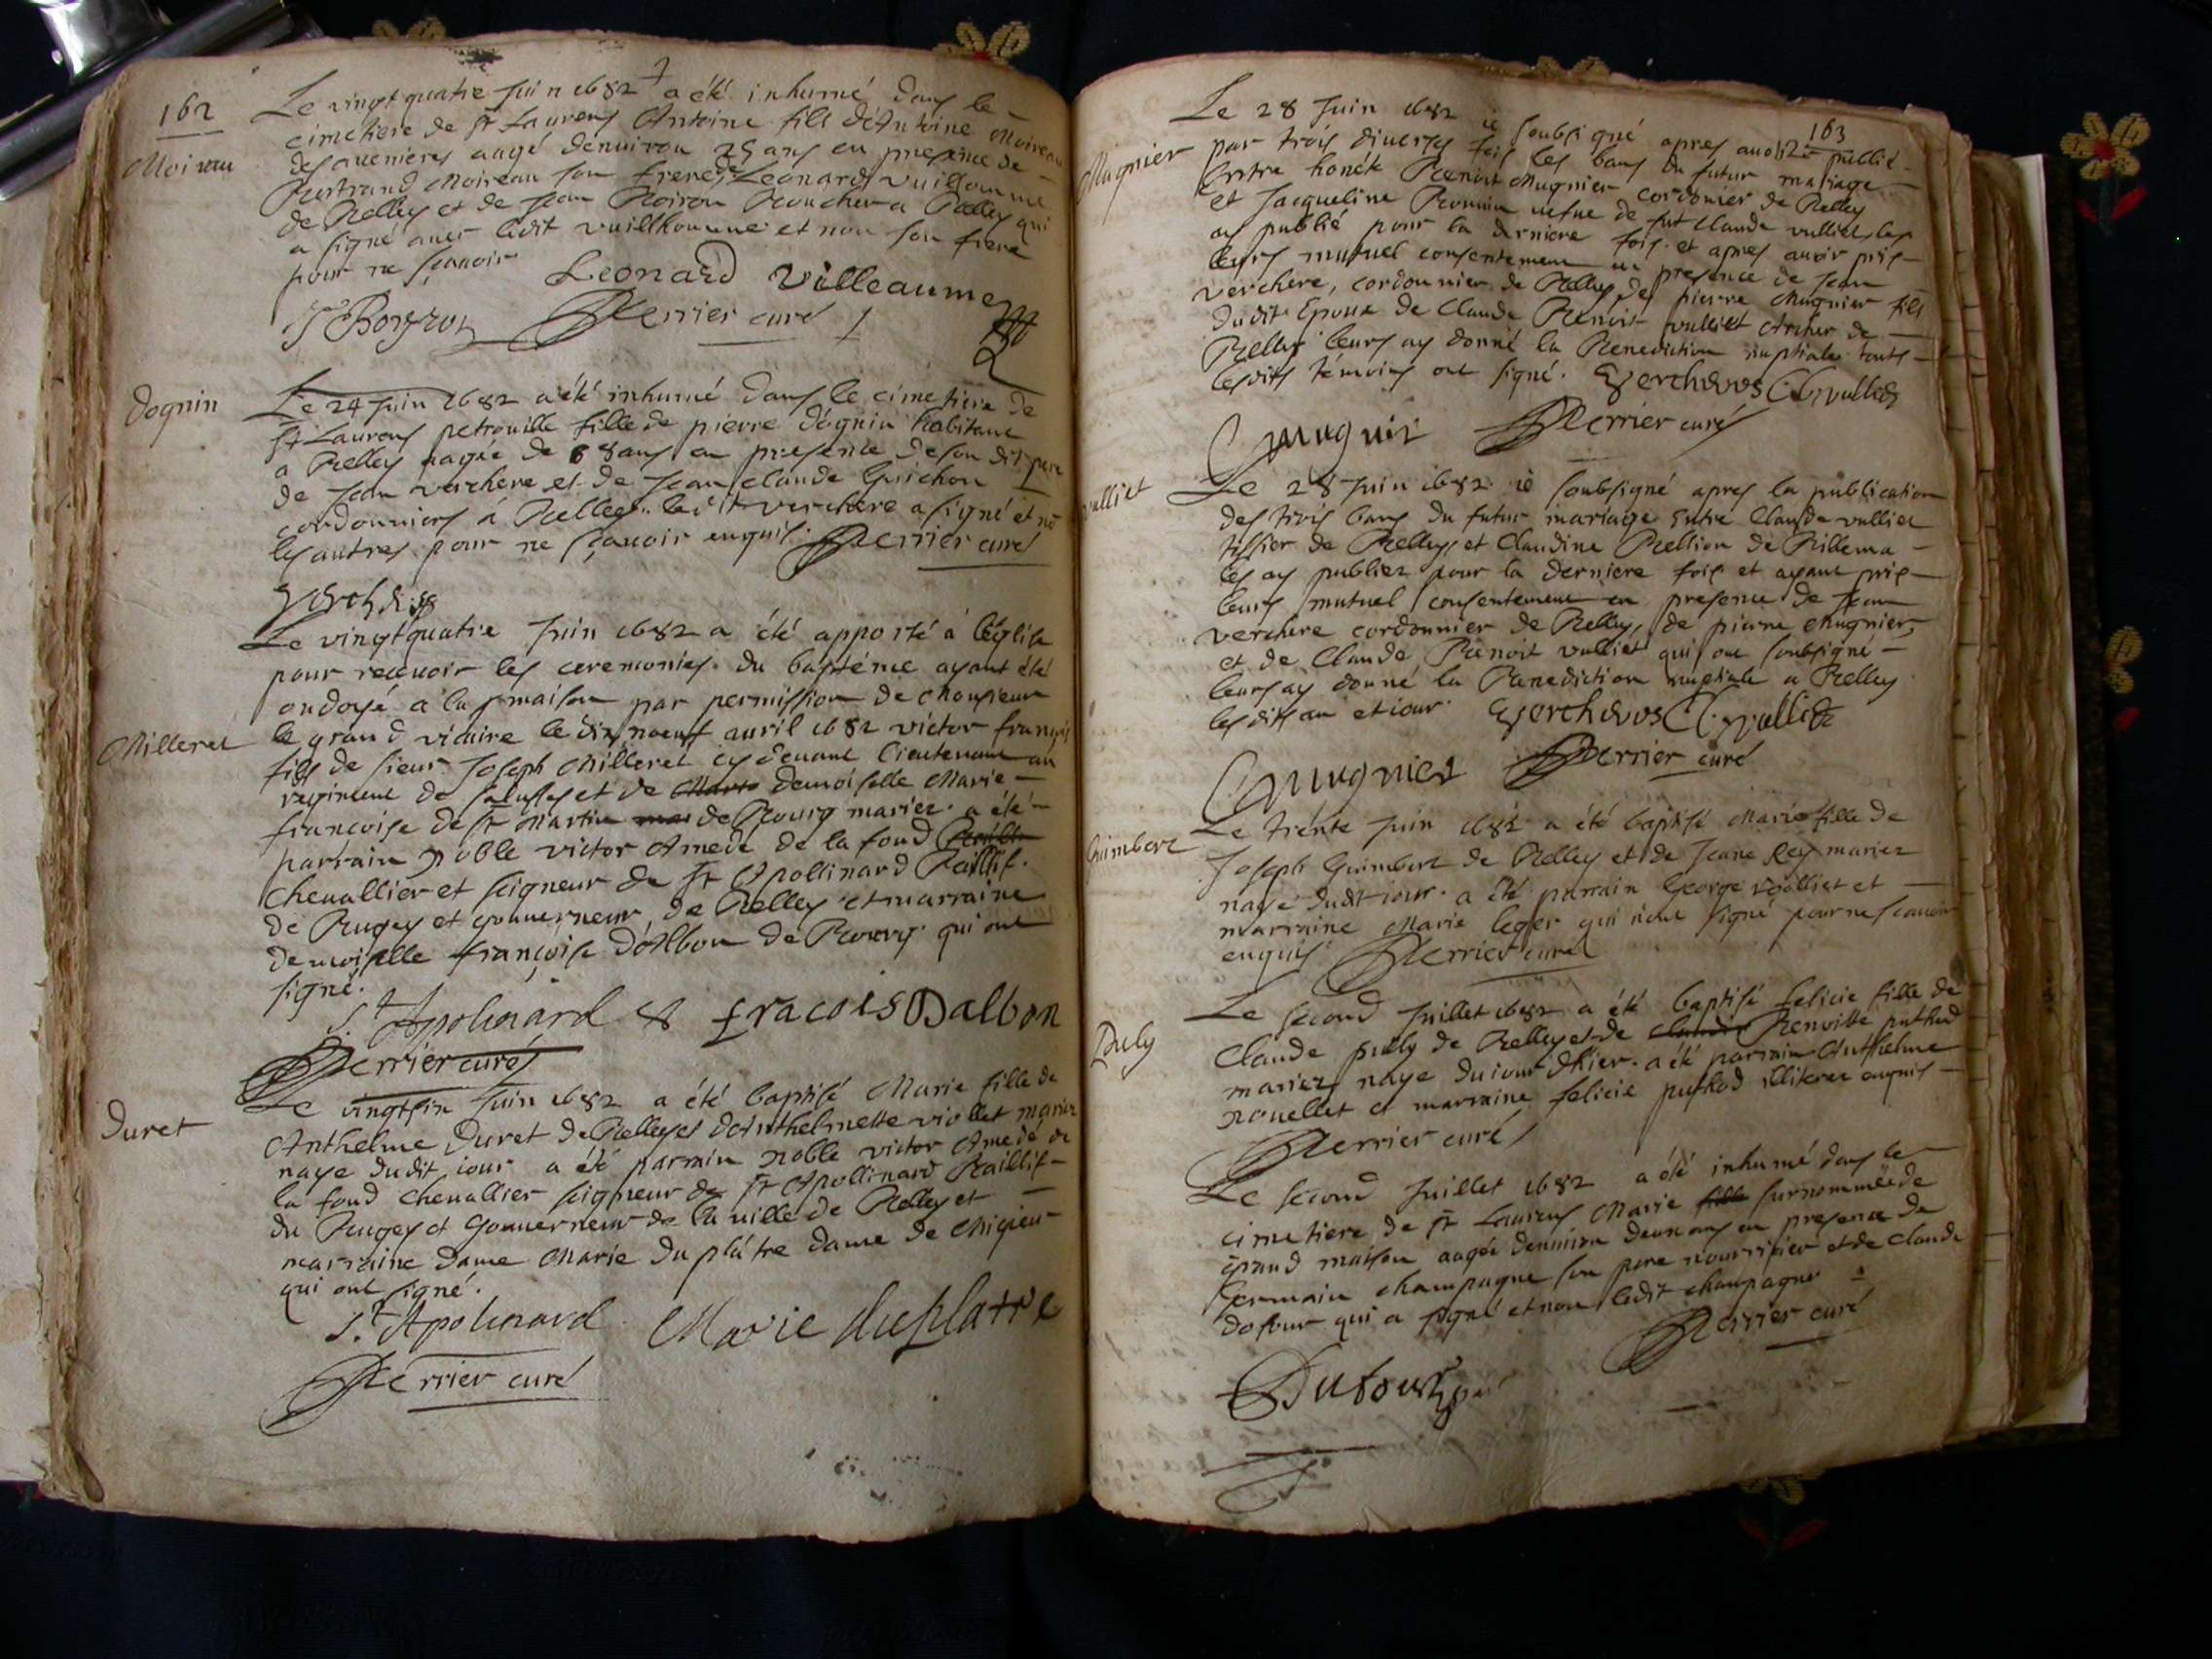 162
Le vingt quatre Juin 1682 a été inhumé dans le
cimetiere de St Laurens Antoine fils d'Antoine Moireau
Moireau
des avenieres aagé denuiron 25 ans en presence de
Bertrand Moireau son frere, de Leonard Vuillaume
de Belley et de Jean Boiron Boucher a Belley qui
a signé auec ledit vuillhoume et non son frere
pour ne sçauoir
Leonard Villeaume
J Boyron Berrier curé
Dognin
Le 24 Juin 1682 a été inhumé dans le cimetiere de
St Laurens petronille fille de pierre dognin habitant
a Belley aagée de 8 ans en presence de son dit pere
de Jean verchere et de Jean Claude Guichon
cordonniers a Belley. ledit verchere a signé et nõ
les autres pour ne sçauoir enquis. Berrier curé
Verchere
Le vingtquatre Juin 1682 a été apporté à l'église
pour receuoir les ceremonies du baptéme ayant été
ondoyé a la maison par permission de Monsieur
Milleret
le grand vicaire le dix noeuf auril 1682 victor françois
fils de sieur Joseph Milleret cy deuant lieutenant au
regiment de salusses et de Marie demoiselle Marie
francoise de St Martin de Bourg mariez. a été
parrain noble victor Amedé de la fond Baillif
Cheuallier et seigneur de St Apollinard Baillif
de Bugey et gouuerneur de Belley et marraine
demoiselle françoise d'Albon de Bourg qui ont
signé.
St Apolinard & fracois Dalbon
Berrier curé
Duret
Le vingtsix Juin 1682 a été baptisé Marie fille de
Anthelme Duret de Belley et d'Anthelmette viollet mariez
naye dudit jour a été parrain noble victor Amedé de
la fond Cheuallier seigneur de St Apollinard Baillif
du Bugey et Gouuerneur de la ville de Belley et
marraine dame Marie du plâtre dame de Migieu
qui ont signé.
St Apolinard Marie duplatre
Berrier curé
163
Le 28 Juin 1682 ie soubsigné apres auoir publié
Mugnier
par trois diuerses fois les bans du futur mariage
Entre honéte Benoit Mugnier cordonier de Belley
et Jacqueline Bonnin uefue de fut Claude vulliet, les
ay publié pour la derniere fois et apres auoir pris
leurs mutuel consentement en presence de Jean
verchere, cordonnier de Belley, de pierre Mugnier fils
dudit Epoux de Claude Benoit vulliet Archer de
Belley leurs ay donné la Benediction nuptiale touts
lesdits témoins ont signé. Verchere C B vulliet
Mugnier Berrier curé
vulliet
Le 28 Juin 1682 ie soubsigné apres la publication
des trois bans du futur mariage Entre Claude vulliet
tissier de Belley, et Claudine Bellion de Billema
les ay publiez pour la derniere fois et ayant pris
leurs mutuel consentement en presence de Jean
verchere cordonnier de Belley, de pierre Mugnier,
et de Claude Benoit vulliet qui ont soubsigné
leurs ay donné la Benediction nuptiale a Belley
lesdits an et iour. Verchere C B vulliet
Mugnier Berrier curé
Guimbert
Le trente Juin 1682 a été baptisé Marie fille de
Joseph Guimbert de Belley et de Jeane Rey mariez
naye dudit iour. a été parrain George vulliet et
marraine Marie leger qui n'ont signé pour ne scauoir
enquis Berrier curé
Puly
Le second Juillet 1682 a été baptisé felicie fille de
Claude puly de Belley et de Claudi Benoitte puthod
mariez naye du iour d'hier. a été parrain Anthelme
nouellet et marraine felicie puthod illiterez enquis
Berrier curé
Le second Juillet 1682 a été inhumé dans le
cimetiere de St Laurens Marie fille surnommée de
grand maison aagée denuiron deux ans en presence de
Germain champagne son pere nourrissier et de Claude
dufour qui a signé et non ledit champagne
Berrier curé
Dufour